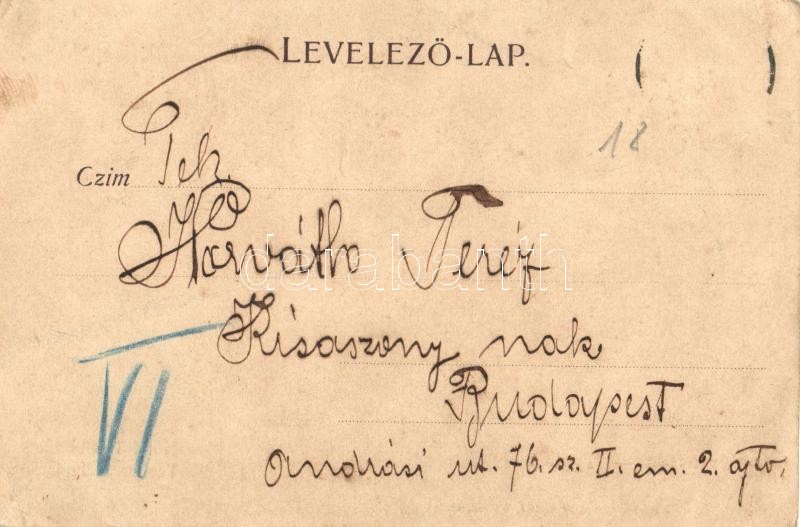 LEVELEZŐ-LAP.
18
Czim Tek.
Horváth Teréz
Kisaszony nak
VI
Budapest
Andrási ut. 76. sz. II. em. 2. ajtó.
darabanth